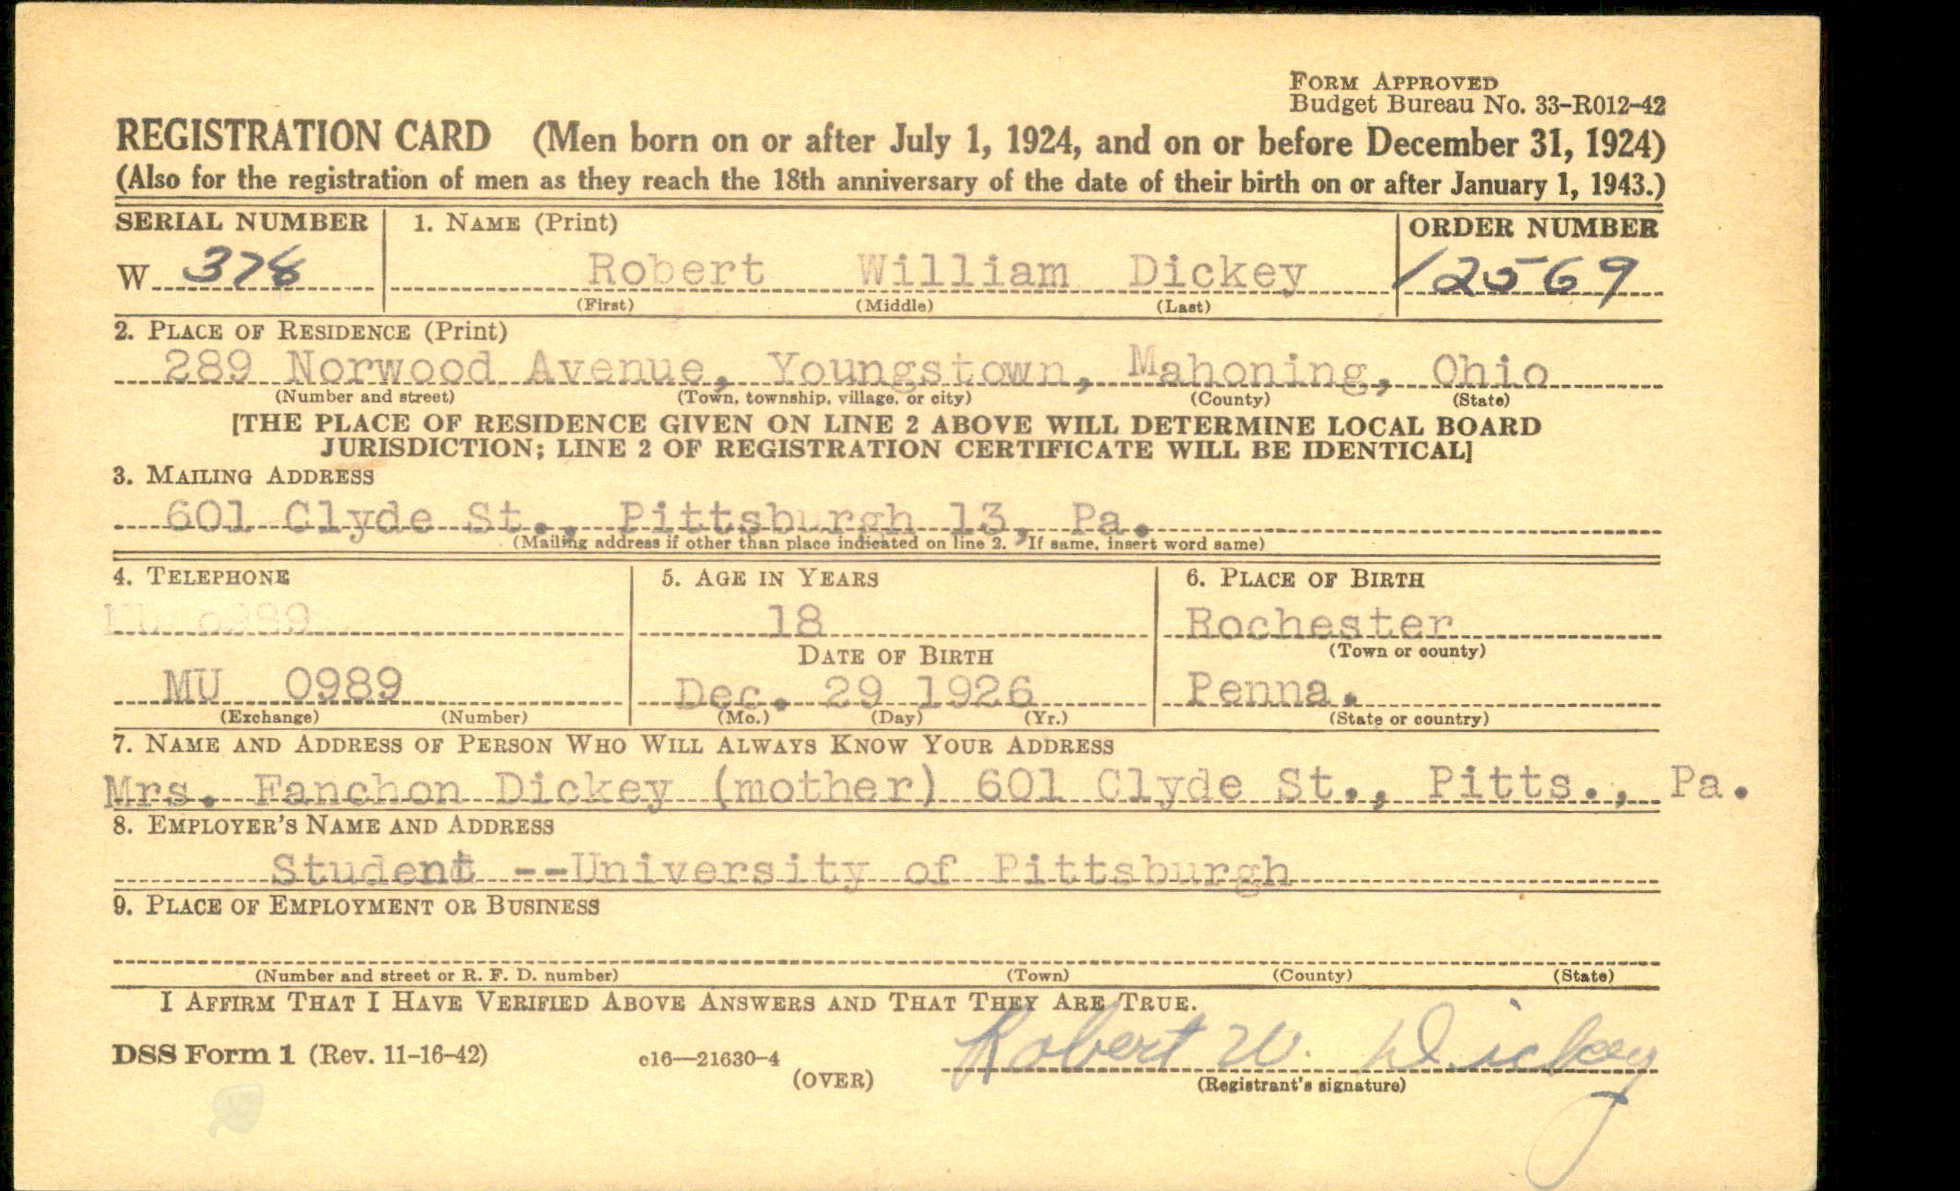 FORM APPROVED
Budget Bureau No. 33-R012-42
REGISTRATION CARD (Men born on or after July 1, 1924, and on or before December 31, 1924)
(Also for the registration of men as they reach the 18th anniversary of the date of their birth on or after January 1, 1943.)
SERIAL NUMBER 1. NAME (Print) ORDER NUMBER
W 378 Robert William Dickey 12569
(First) (Middle) (Last)
2. PLACE OF RESIDENCE (Print)
289 Norwood Avenue, Youngstown, Mahoning, Ohio
(Number and street) (Town, township, village, or city) (County) (State)
[THE PLACE OF RESIDENCE GIVEN ON LINE 2 ABOVE WILL DETERMINE LOCAL BOARD
JURISDICTION; LINE 2 OF REGISTRATION CERTIFICATE WILL BE IDENTICAL]
3. MAILING ADDRESS
601 Clyde St., Pittsburgh 13, Pa.
(Mailing address if other than place indicated on line 2. If same, insert word same)
4. TELEPHONE 5. AGE IN YEARS 6. PLACE OF BIRTH
18 Rochester
DATE OF BIRTH (Town or county)
MU 0989 Dec. 29 1926 Penna.
(Exchange) (Number) (Mo.) (Day) (Yr.) (State or country)
7. NAME AND ADDRESS OF PERSON WHO WILL ALWAYS KNOW YOUR ADDRESS
Mrs. Fanchon Dickey (mother) 601 Clyde St., Pitts., Pa.
8. EMPLOYER'S NAME AND ADDRESS
Student --University of Pittsburgh
9. PLACE OF EMPLOYMENT OR BUSINESS
(Number and street or R. F. D. number) (Town) (County) (State)
I AFFIRM THAT I HAVE VERIFIED ABOVE ANSWERS AND THAT THEY ARE TRUE.
Robert W. Dickey
DSS Form 1 (Rev. 11-16-42) c16—21630-4
(OVER) (Registrant's signature)